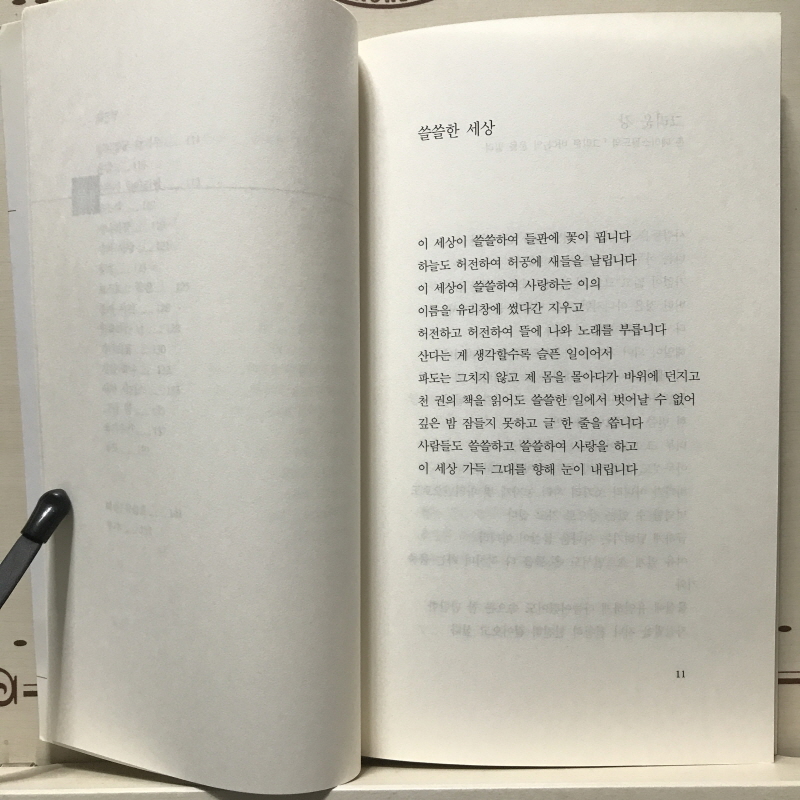 쓸쓸한 세상
이 세상이 쓸쓸하여 들판에 꽃이 핍니다
하늘도 허전하여 허공에 새들을 날립니다
이 세상이 쓸쓸하여 사랑하는 이의
이름을 유리창에 썼다간 지우고
허전하고 허전하여 뜰에 나와 노래를 부릅니다
산다는 게 생각할수록 슬픈 일이어서
파도는 그치지 않고 제 몸을 몰아다가 바위에 던지고
천 권의 책을 읽어도 쓸쓸한 일에서 벗어날 수 없어
깊은 밤 잠들지 못하고 글 한 줄을 씁니다
사람들도 쓸쓸하고 쓸쓸하여 사랑을 하고
이 세상 가득 그대를 향해 눈이 내립니다
11